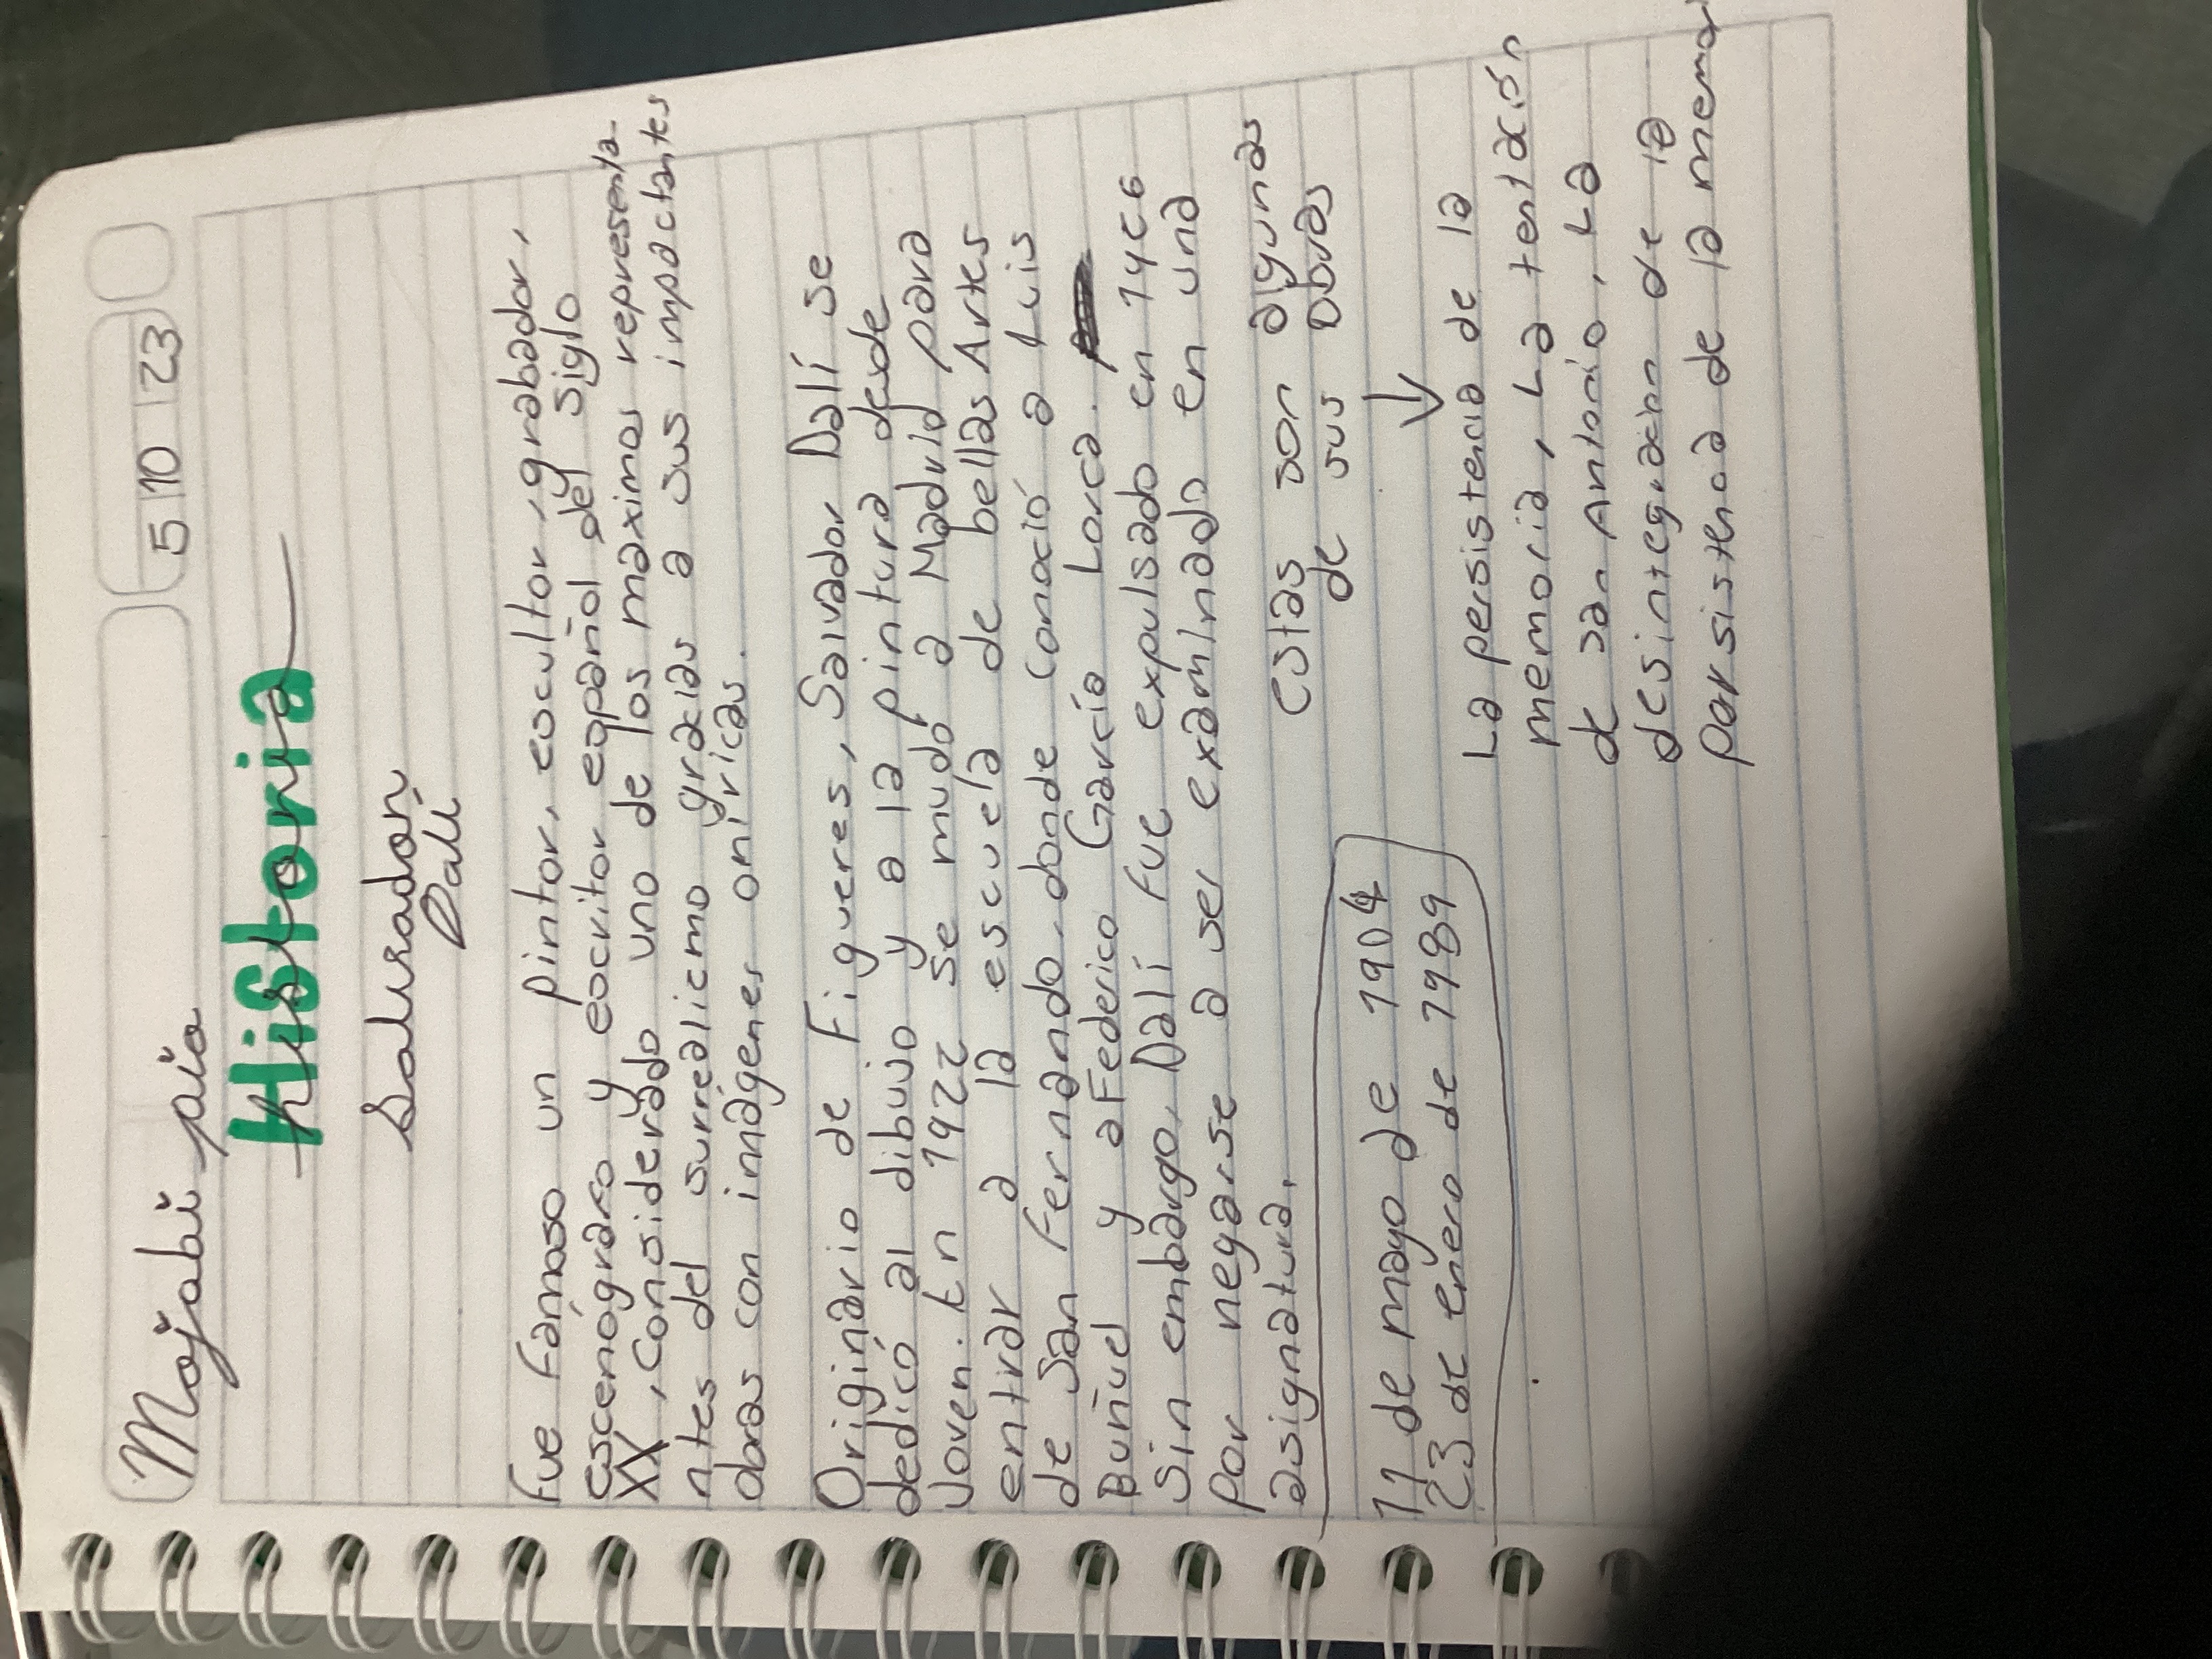 5 10 23
Historia
Salvador
Dalí
Fue Famoso un pintor, escultor, grabador,
escenógrafo y escritor español del siglo
XX, Considerado uno de los maximos representa-
ntes del surrealismo gracias a sus impactantes
obras con imágenes oníricas.
Originario de Figueres, Salvador Dalí se
dedicó al dibujo y a la pintura desde
joven. En 1922 se mudó a Madrid para
entrar a la escuela de bellas Artes
de San Fernando, donde conoció a Luis
Buñuel y a Federico García Lorca.
Sin embargo, Dalí fue expulsado en 1926
por negarse a ser examinado en una
asignatura.
estas son algunas
de sus obras
11 de mayo de 1904
23 de enero de 1989
La persistencia de la
memoria, La tentación
de san Antonio, La
desintegración de la
persistencia de la memor